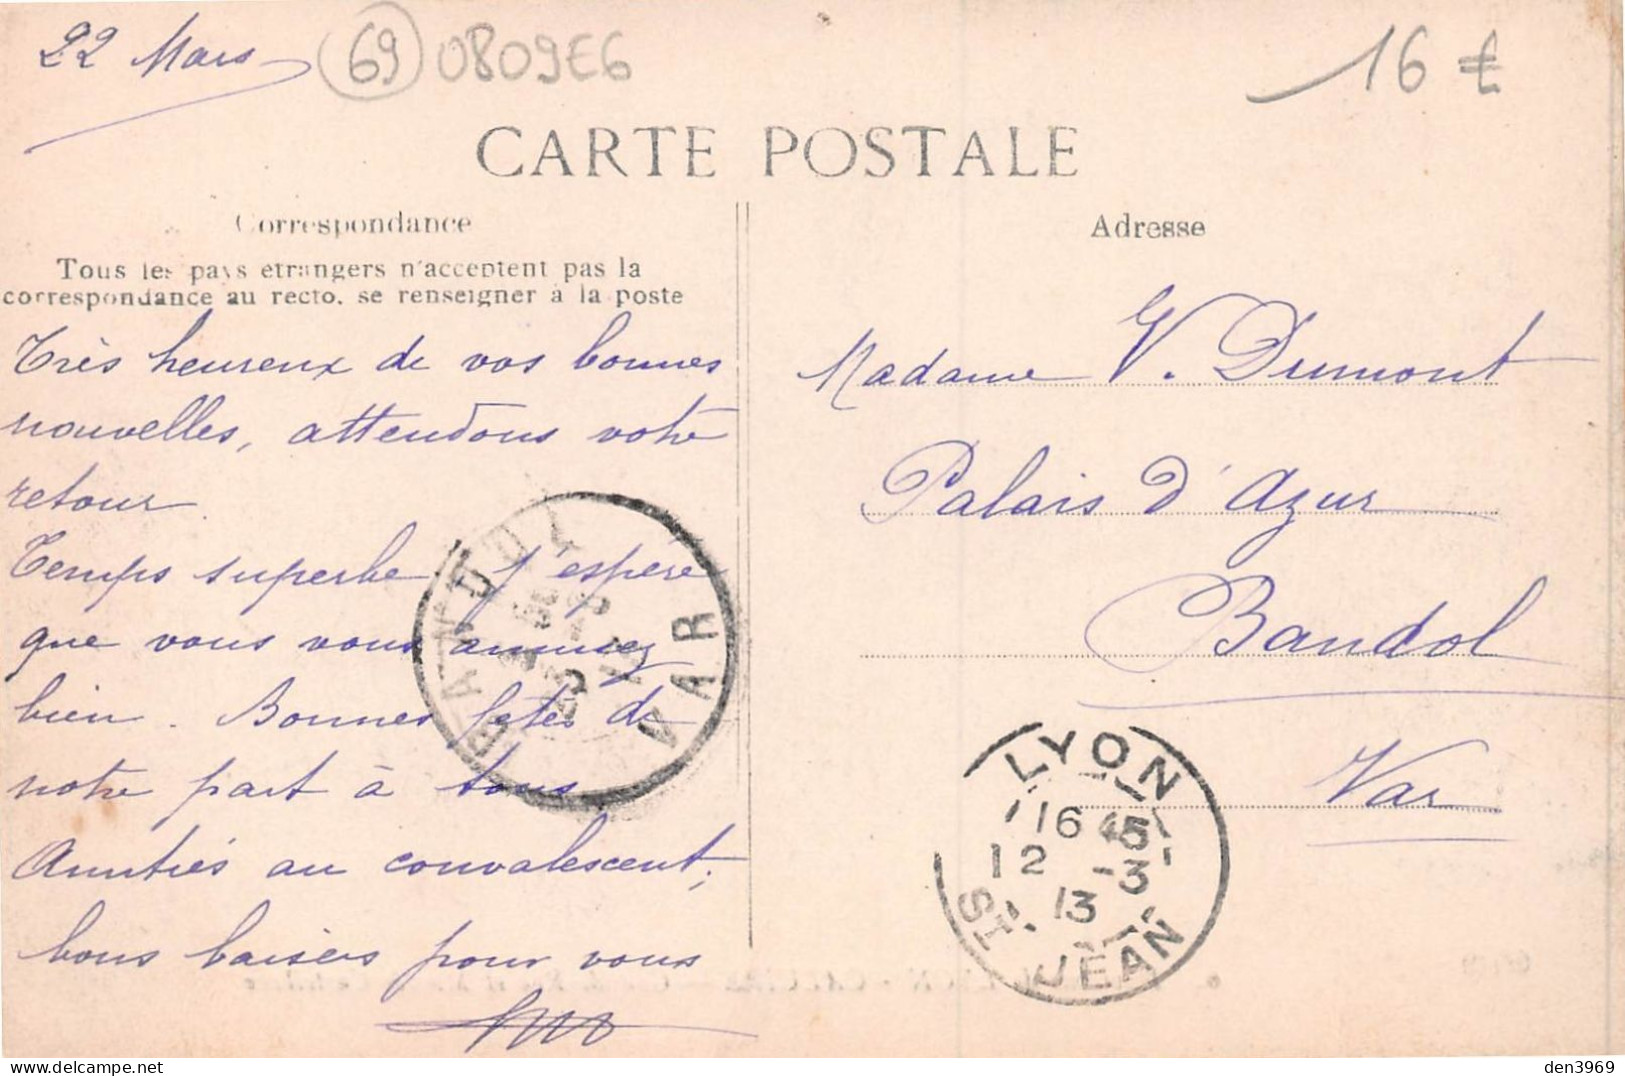 22 Mars
69 0809E6
16 €
CARTE POSTALE
Correspondance
Tous les pays etrangers n'acceptent pas la
correspondance au recto, se renseigner à la poste
Très heureux de vos bonnes
nouvelles, attendons votre
retour.
Temps superbe j'espère
que vous vous amusez
bien. Bonnes fêtes de
notre part à tous.
Amitiés au convalescent,
bons baisers pour vous
BANDOL
VAR
Adresse
Madame V. Dumont
Palais d'Azur
Bandol
Var
LYON
16 45
12 -3
13
ST JEAN
den3969